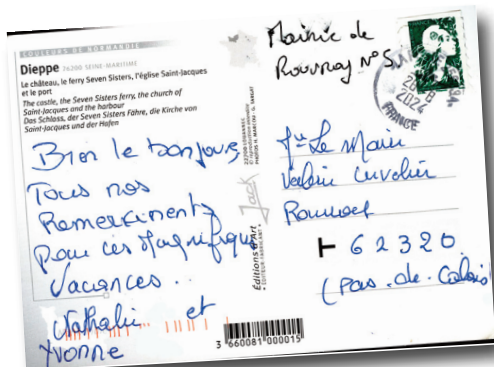 COULEURS DE NORMANDIE
Dieppe 76200 SEINE-MARITIME
Le château, le ferry Seven Sisters, l'église Saint-Jacques
et le port
The castle, the Seven Sisters ferry, the church of
Saint-Jacques and the harbour
Das Schloss, der Seven Sisters Fähre, die Kirche von
Saint-Jacques und der Hafen
Bien le bonjour,
Tous nos
Remerciments
pour ces Magnifique
Vacances...
Nathalie et
Yvonne
Editions d'Art
Jack
Mairie de
Rouvroy N° 5
28-8
2024
FRANCE
Le Maire
Valérie Cuvelier
Rouvroy
62320
(Pas-de-Calais)
3 660081 000015